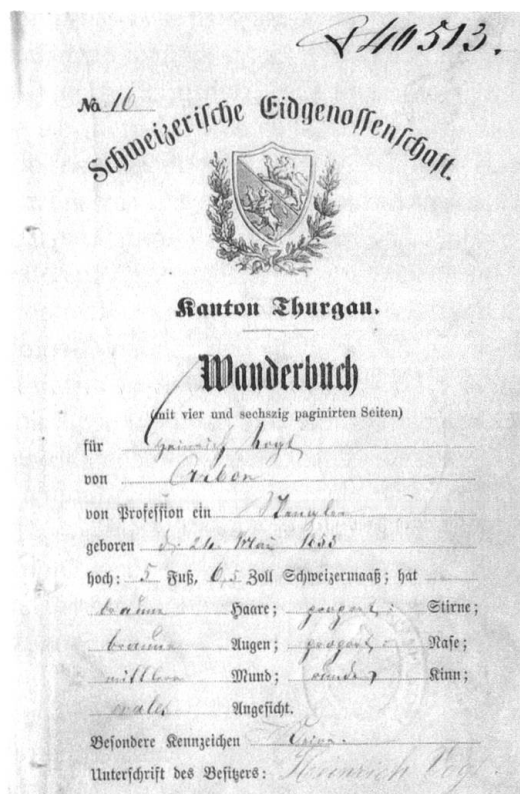 40513.
No 16
Schweizerische Eidgenossenschaft.
Kanton Thurgau.
Wanderbuch
(mit vier und sechszig paginirten Seiten)
für Heinrich Vogt
von Arbon
von Profession ein Spengler
geboren 24 Mai 1833
hoch: 5 Fuß, 6,5 Zoll Schweizermaaß; hat
braune Haare; proport: Stirne;
braune Augen; proport Nase;
mittlern Mund; rundes Kinn;
ovales Angesicht.
Besondere Kennzeichen
Unterschrift des Besitzers: Heinrich Vogt